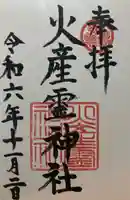 奉拝
火産霊神社
令和六年十一月二日